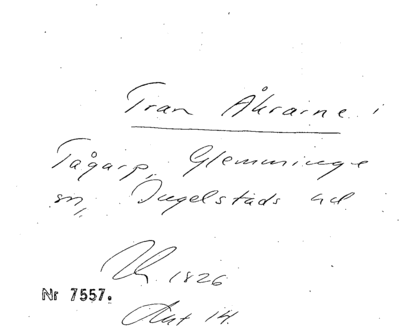 Tran Åkraine i
Tågarp, Glemminge
sn, Ingelstads hd
1826
Nr 7557.
Ant 14.